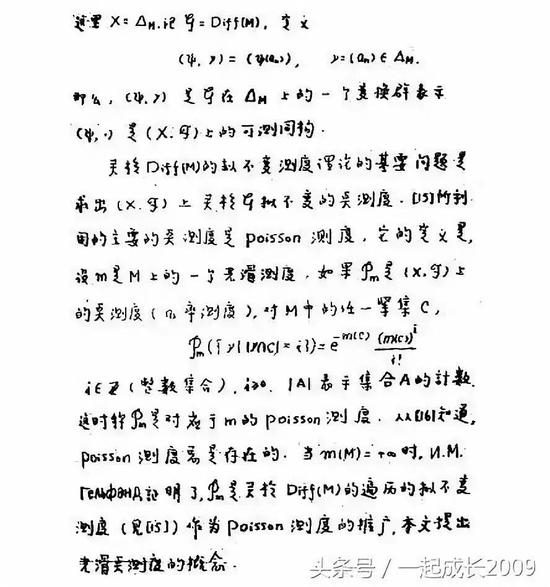 这里 X = Δ_M. 记 𝒢 = Diff(M), 定义
(ψ, γ) = (ψ(a_n)), γ = (a_n) ∈ Δ_M.
那么, (ψ, γ) 是 𝒢 在 Δ_M 上的一个变换群表示
(ψ, ·) 是 (X, 𝒥) 上的可测同构.
关于 Diff(M) 的拟不变测度理论的基要问题是
求出 (X, 𝒥) 上关于 𝒢 拟不变的 测度. [15] 所利
用的主要的 测度是 poisson 测度, 它的定义是,
设 m 是 M 上的一个光滑测度, 如果 P_m 是 (X, 𝒥) 上
的 测度 (几率测度), 对 M 中的任一紧集 C,
P_m({γ | |γ∩C| = i}) = e^{-m(C)} (m(C))^i / i!
i∈Z (整数集合), i≥0, |A| 表示集合 A 的计数.
这时称 P_m 是对应于 m 的 poisson 测度. 从 [16] 知道,
poisson 测度总是存在的. 当 m(M) = +∞ 时, И.М.
ГЕЛЬФАНД 证明了, P_m 是关于 Diff(M) 的遍历的拟不变
测度 (见 [15]) 作为 Poisson 测度的推广, 本文提出
光滑 测度的概念.
头条号 / 一起成长2009